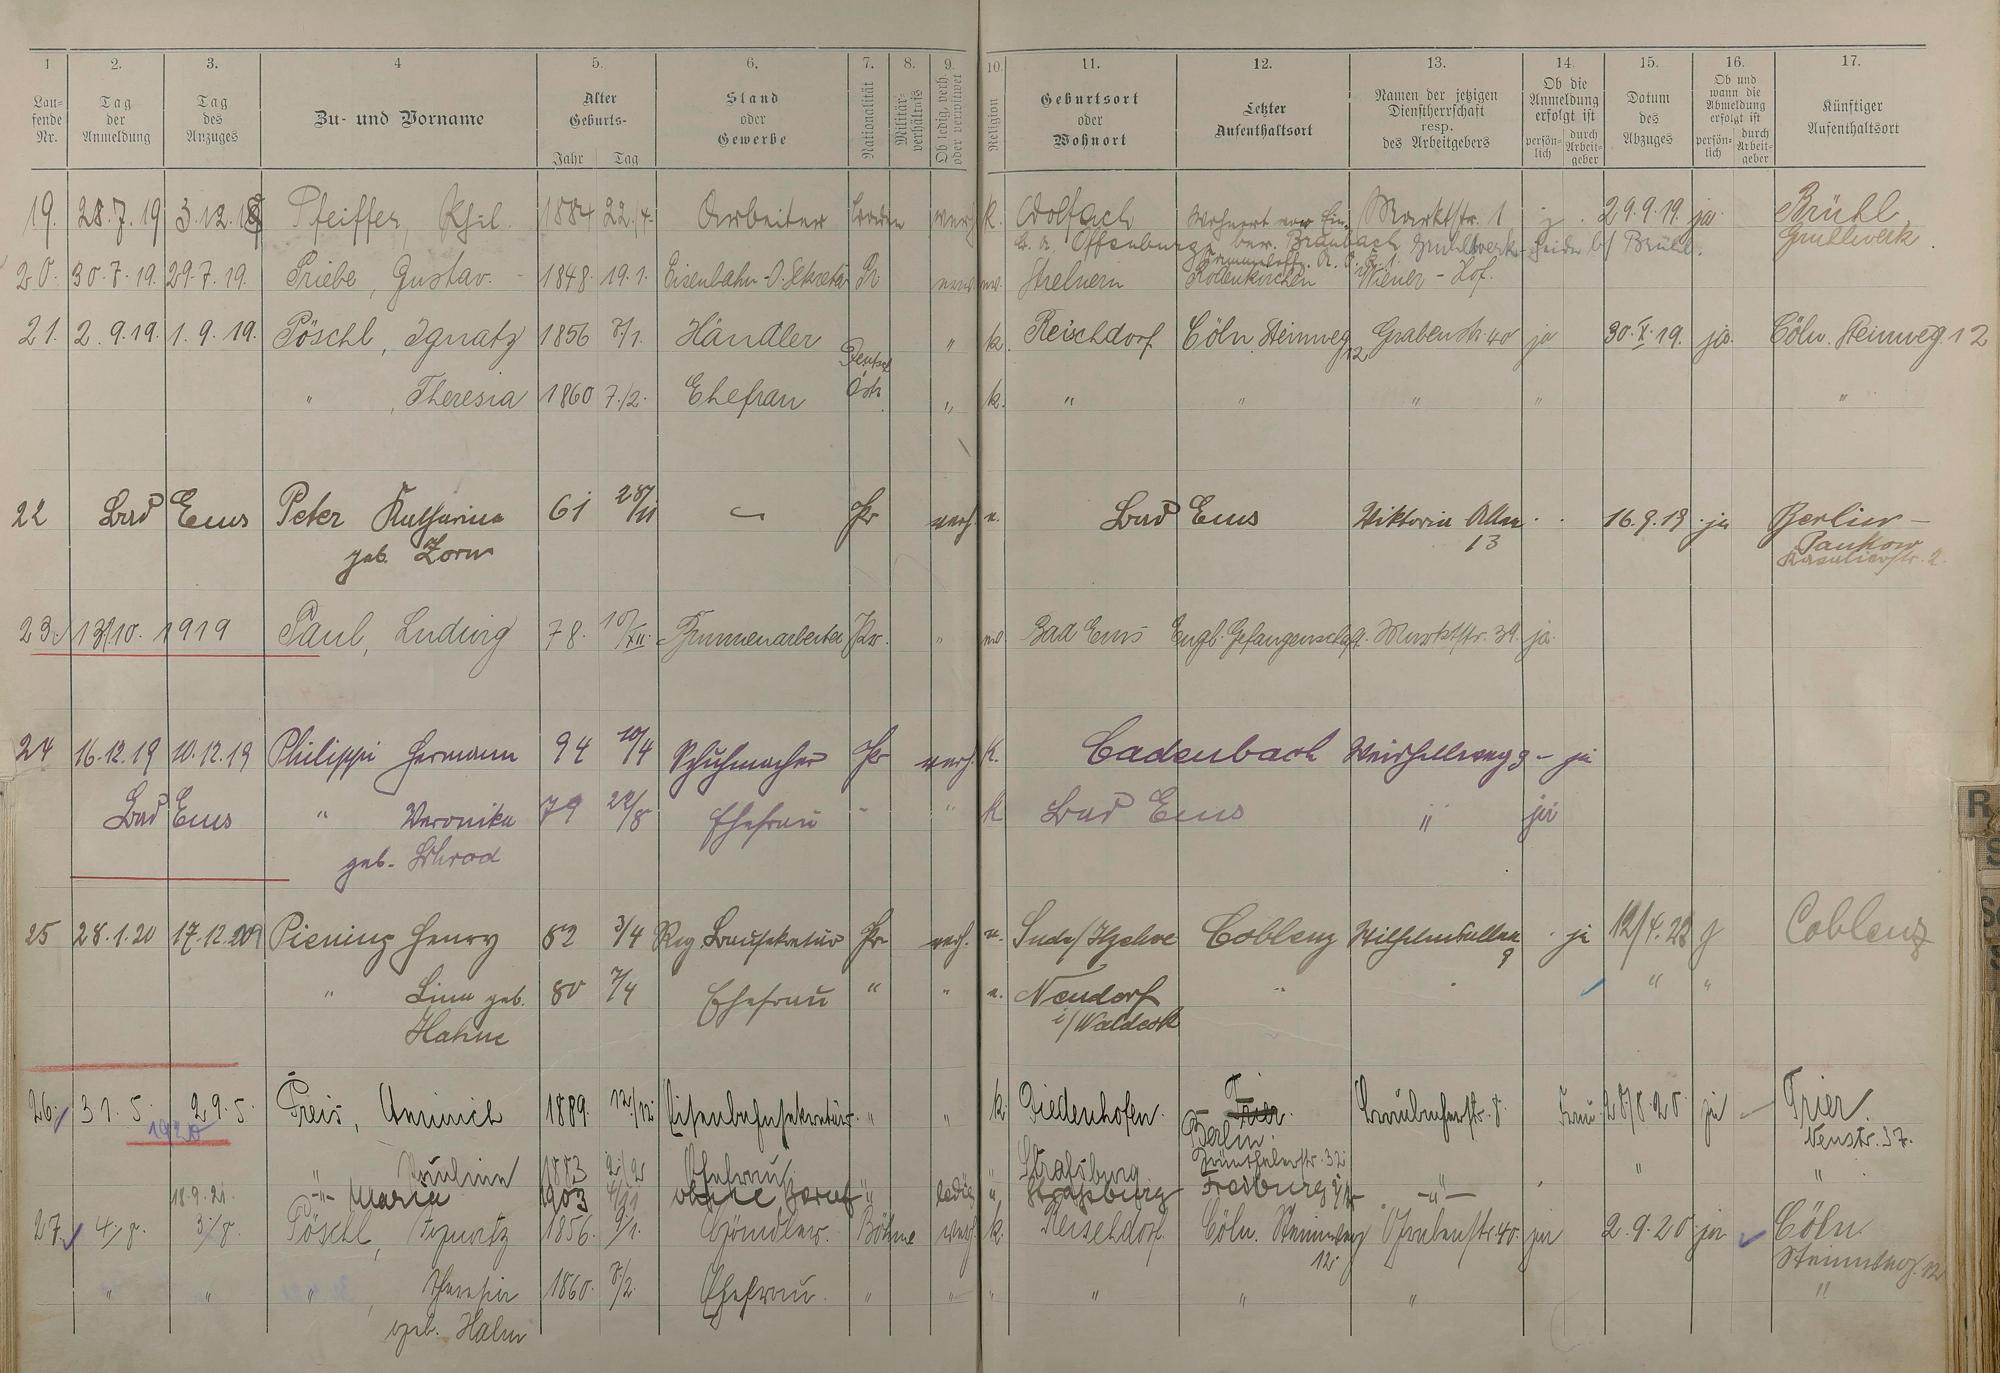 1 2. 3. 4 5. 6. 7. 8. 9. 10. 11. 12. 13. 14. 15. 16. 17.
Lau-fende Nr. Tag der Anmeldung Tag des Anzuges Zu- und Vorname Alter Geburts- Jahr Tag Stand oder Gewerbe Nationalität Militär-verhältnis Ob ledig, verh. oder verwitwet Religion Geburtsort oder Wohnort Letzter Aufenthaltsort Namen der jetzigen Dienstherrschaft resp. des Arbeitgebers Ob die Anmeldung erfolgt ist persön-lich durch Arbeit-geber Datum des Abzuges Ob und wann die Abmeldung erfolgt ist persön-lich durch Arbeit-geber Künftiger Aufenthaltsort
19. 28.7.19 3.12.18 Pfeiffer, 1884 22./4. Arbeiter Baden verh. k. Wolfach Marktstr. 1 j. 29.9.19. ja Brühl
b. Offenburg bew. Braubach Brühl. Gruhlwerk
20. 30.7.19. 29.7.19. Priebe, Gustav. 1848. 19.1. Eisenbahn-O.Sekretär Pr ev. Strelnern Rodenkirchen Wiener-Hof.
21. 2.9.19. 1.9.19. Pöschl, Ignatz 1856 7/1. Händler Deutsch Östr. " k. Reischdorf Cöln Steinweg 12 Grabenstr. 40 ja 30.X.19. ja. Cöln. Steinweg. 12
" , Theresia 1860 7./2. Ehefrau " k. " " " " "
22 Bad Ems Peter Katharina 61 28/11 — Pr verh. e. Bad Ems Viktoria Allee 13 16.9.19 ja Berlin-
geb. Zorn Pankow
23. 13/10. 1919 Paul, Ludwig 78. 10/XII. Brunnenarbeiter Pr. " ev Bad Ems Engl. Gefangenschaft. Marktstr. 39. ja.
24 16.12.19 10.12.19 Philippi Hermann 94 10/4 Schuhmacher Pr verh. K. Cadenbach 9 - ja
Bad Ems " Veronika 79 22/8 Ehefrau " " k Bad Ems " ja
geb. Schrod
25 28.1.20 17.12.19 Piening Henry 82 3/4 Reg. Bausekretär Pr verh. e. Sude/Itzehoe Coblenz Wilhelmsallee 9 ja 12/4.22 j Coblenz
" Lina geb. 80 7/4 Ehefrau " " e. Neudorf " " "
Hahne i/Waldeck
26. 31.5. 29.5. Preis, Heinrich 1889. 12/12. Eisenbahnsekretär " " k. Diedenhofen. Trier. Braubacherstr. 8 Frau 28/8.20 ja — Trier.
1920 Berlin. Neustr. 37.
" Pauline 1883 2/2 Ehefrau " Straßburg " " "
18.9.21. -"- Maria 1903 ohne Beruf " ledig " Straßburg Freiburg -"-
27. 4./8. 3./8. Pöschl, Ignatz 1856. 7/1. Händler. Böhme verh. k. Reischdorf Cöln. Steinweg 12. Grabenstr. 40. ja 2.9.20. ja Cöln.
Steinweg. 12
" " " , Theresia 1860. 7/2. Ehefrau. " " " " " " "
geb. Hahn